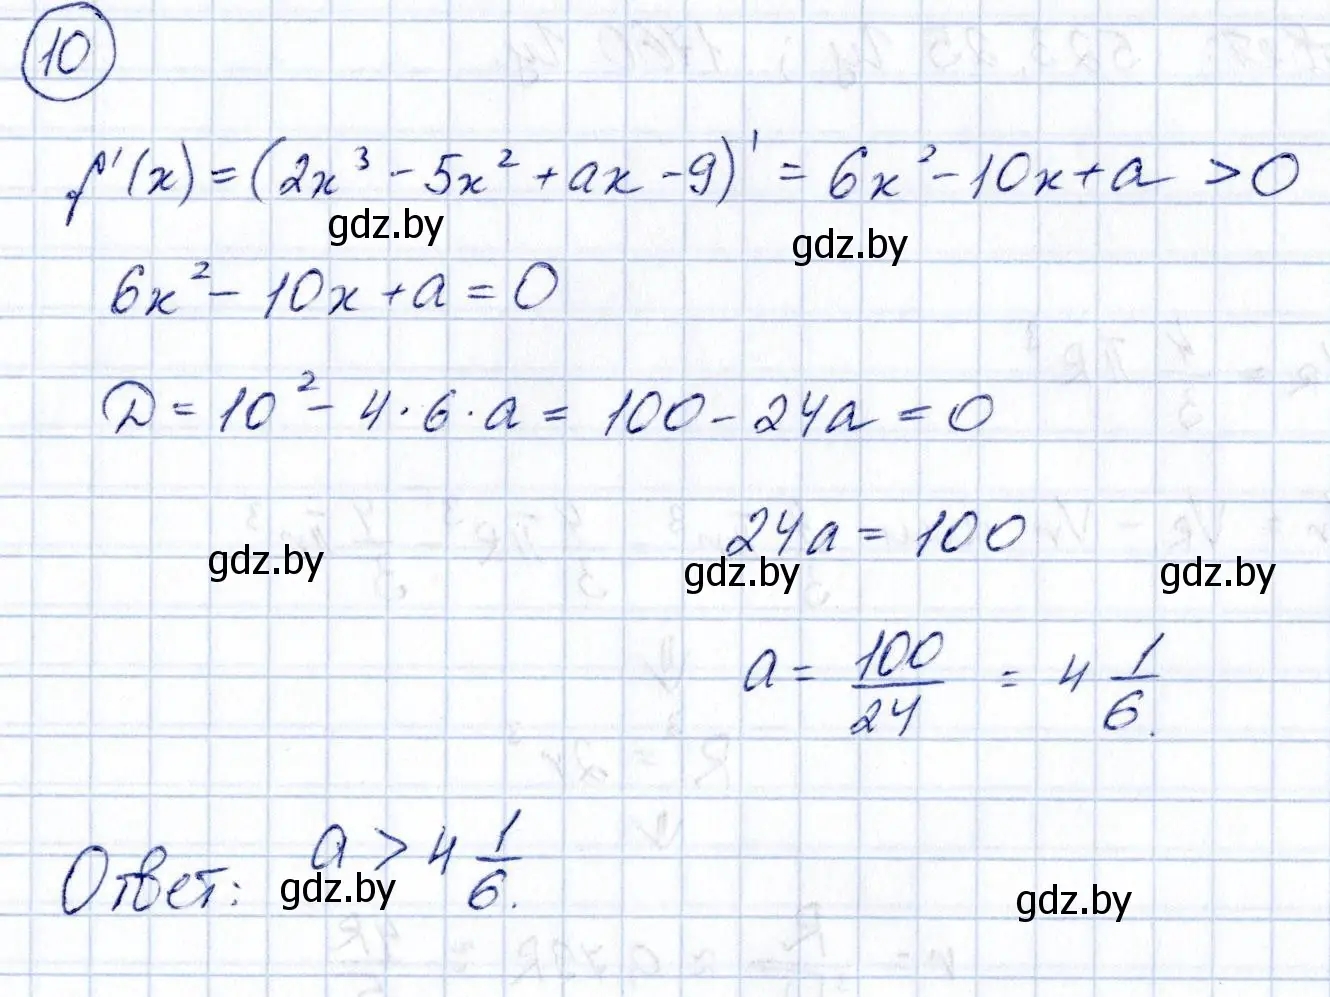 10
f'(x) = (2x³ - 5x² + ax - 9)' = 6x² - 10x + a > 0
gdz.by gdz.by
6x² - 10x + a = 0
D = 10² - 4 · 6 · a = 100 - 24a = 0
24a = 100
gdz.by gdz.by gdz.by
a = 100/24 = 4 1/6.
Ответ: a > 4 1/6.
gdz.by gdz.by